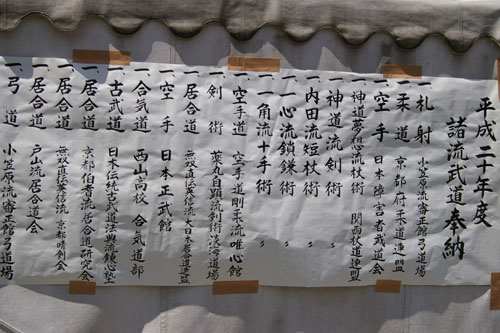 平成二十年度
諸流武道奉納
一、札射 小笠原流蕃正館弓道場
一、柔道 京都府柔道連盟
一、空手 日本障害者武道会
一、神道夢想流杖術 関西杖道連盟
一、神道流剣術 〃
一、内田流短杖術 〃
一、一心流鎖鎌術 〃
一、一角流十手術 〃
一、空手道 空手道剛柔流唯心館
一、剣術 薬丸自顕流剣術淡海道場
無双直伝英信流大日本居合道連盟
一、空手 日本正武館
一、合気道 西山高校 合気道部
一、古武道 日本伝統古武道法典
一、居合道 京都伯耆流居合道研究会
一、居合道 無双直伝英信流 京都晴剣会
一、居合道 戸山流居合道会
一、弓道 小笠原流蕃正館弓道場